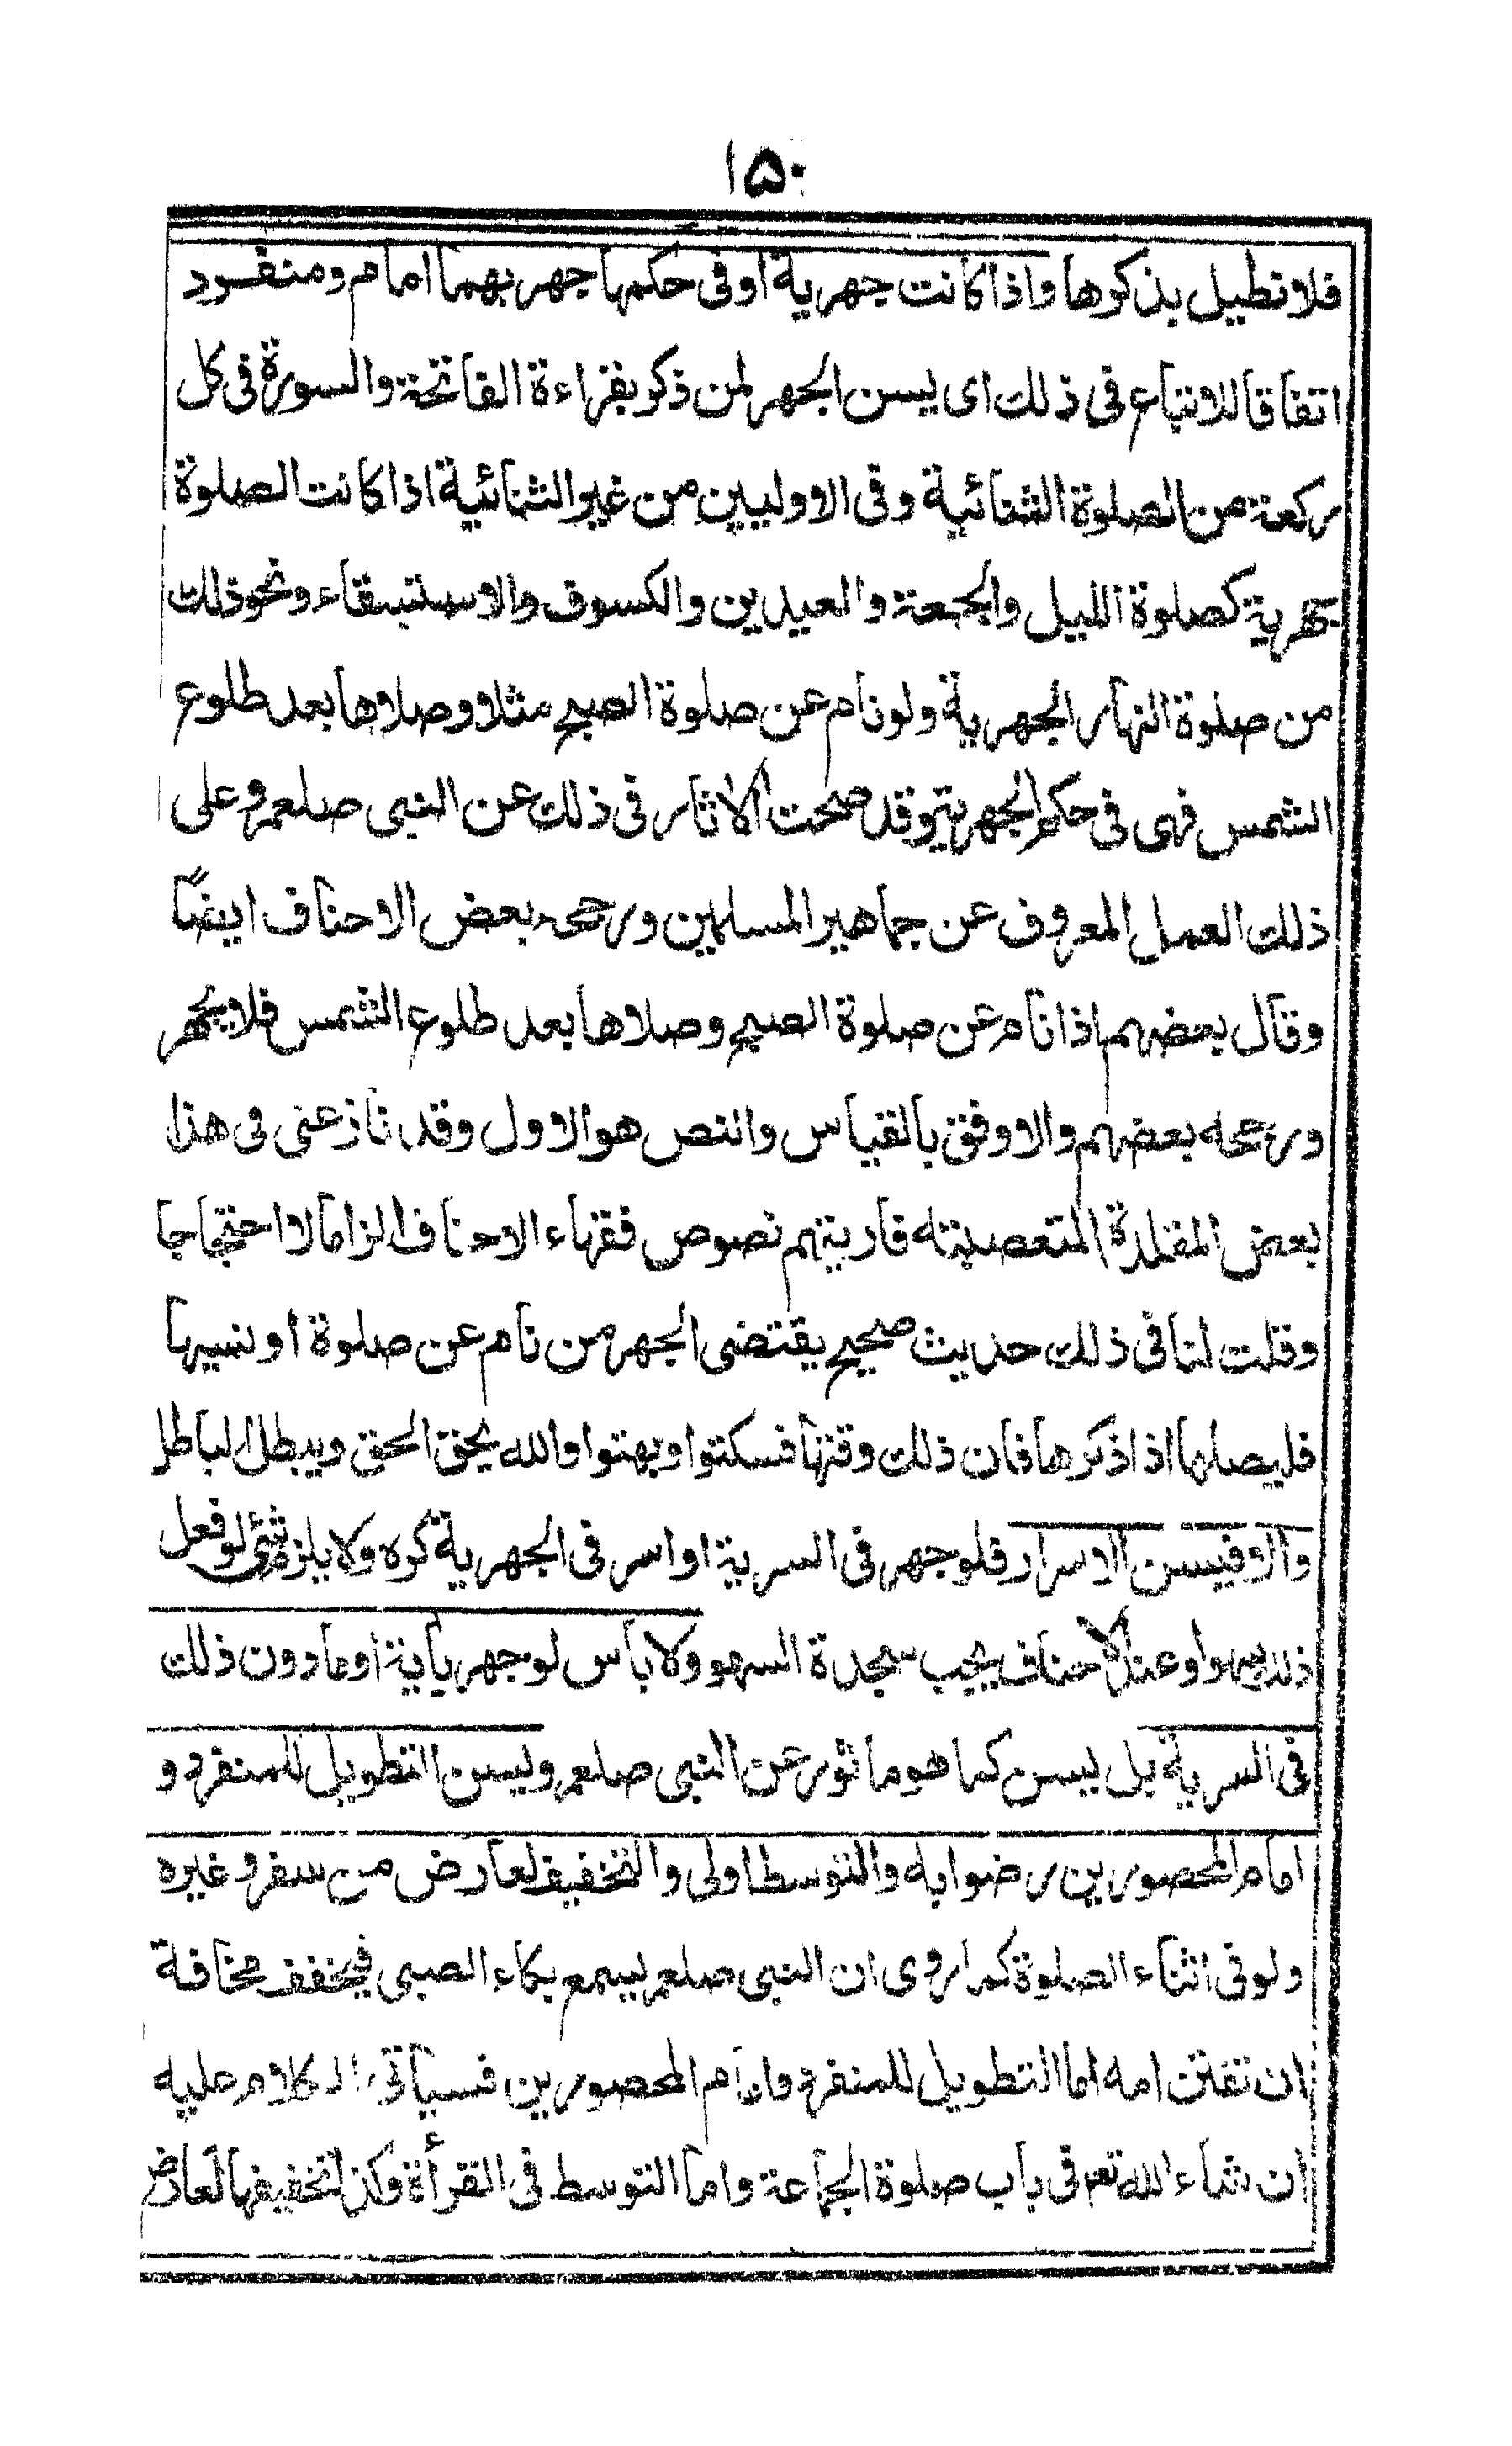 ۱۵۰
فلا نطيل بذكرها واذا كانت جهرية او فى حكمها جهر بهما امام ومنفرد
اتفاقا للاتباع فى ذلك اى يسن الجهر لمن ذكر بقراءة الفاتحة والسورة فى كل
ركعة من الصلوة الثنائية وفى الاوليين من غير الثنائية اذا كانت الصلوة
جهرية كصلوة الليل والجمعة والعيدين والكسوف والاستسقاء ونحو ذلك
من صلوة النهار الجهرية ولو نام عن صلوة الصبح مثلا وصلاها بعد طلوع
الشمس فهى فى حكم الجهرية وقد صحت الآثار فى ذلك عن النبى صلعم وعلى
ذلك العمل المعروف عن جماهير المسلمين ورجحه بعض الاحناف ايضًا
وقال بعضهم اذا نام عن صلوة الصبح وصلاها بعد طلوع الشمس فلا يجهر
ورجحه بعضهم والاوفق بالقياس والنص هو الاول وقد نازعنى فى هذا
بعض المقلدة المتعصبة فاريتهم نصوص فقهاء الاحناف الزاما لا احتجاجا
وقلت لنا فى ذلك حديث صحيح يقتضى الجهر من نام عن صلوة او نسيها
فليصلها اذا ذكرها فان ذلك وقتها فسكتوا وبهتوا والله يحق الحق ويبطل الباطل
والا فيسن الاسرار فلو جهر فى السرية او اسر فى الجهرية كره ولا يلزم شئ لو فعل
ذلك سهوا وعند الاحناف يجب سجدة السهو ولا بأس لو جهر بآية او ما دون ذلك
فى السرية بل يسن كما هو ماثور عن النبى صلعم ويسن التطويل للمنفرد و
امام المحصورين رضوا به والتوسط اولى والتخفيف لعارض من سفر وغيره
ولو فى اثناء الصلوة كما روى ان النبى صلعم ليسمع بكاء الصبى فيخفف مخافة
ان تفتن امه اما التطويل للمنفرد وامام المحصورين فسيأتى الكلام عليه
ان شاء الله تعم فى باب صلوة الجماعة واما التوسط فى القرأة وكذا تخفيفها لعارض